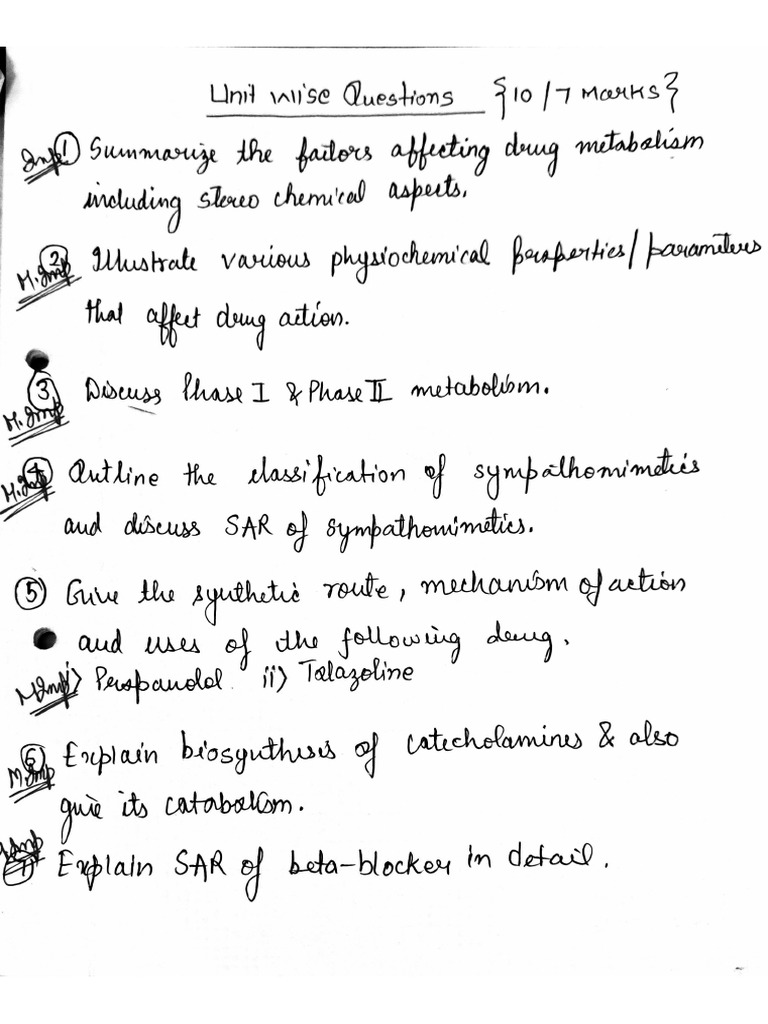 Unit wise Questions {10/7 Marks}
Imp 1 Summarize the factors affecting drug metabolism
including stereo chemical aspects.
M.Imp 2 Illustrate various physiochemical properties/parameters
that affect drug action.
M.Imp 3 Discuss Phase I & Phase II metabolism.
M.Imp 4 Outline the classification of sympathomimetics
and discuss SAR of sympathomimetics.
5 Give the synthetic route, mechanism of action
and uses of the following drug.
M Imp i) Propandol ii) Tolazoline
M.Imp 6 Explain biosynthesis of catecholamines & also
give its catabolism.
Imp 7 Explain SAR of beta-blocker in detail.